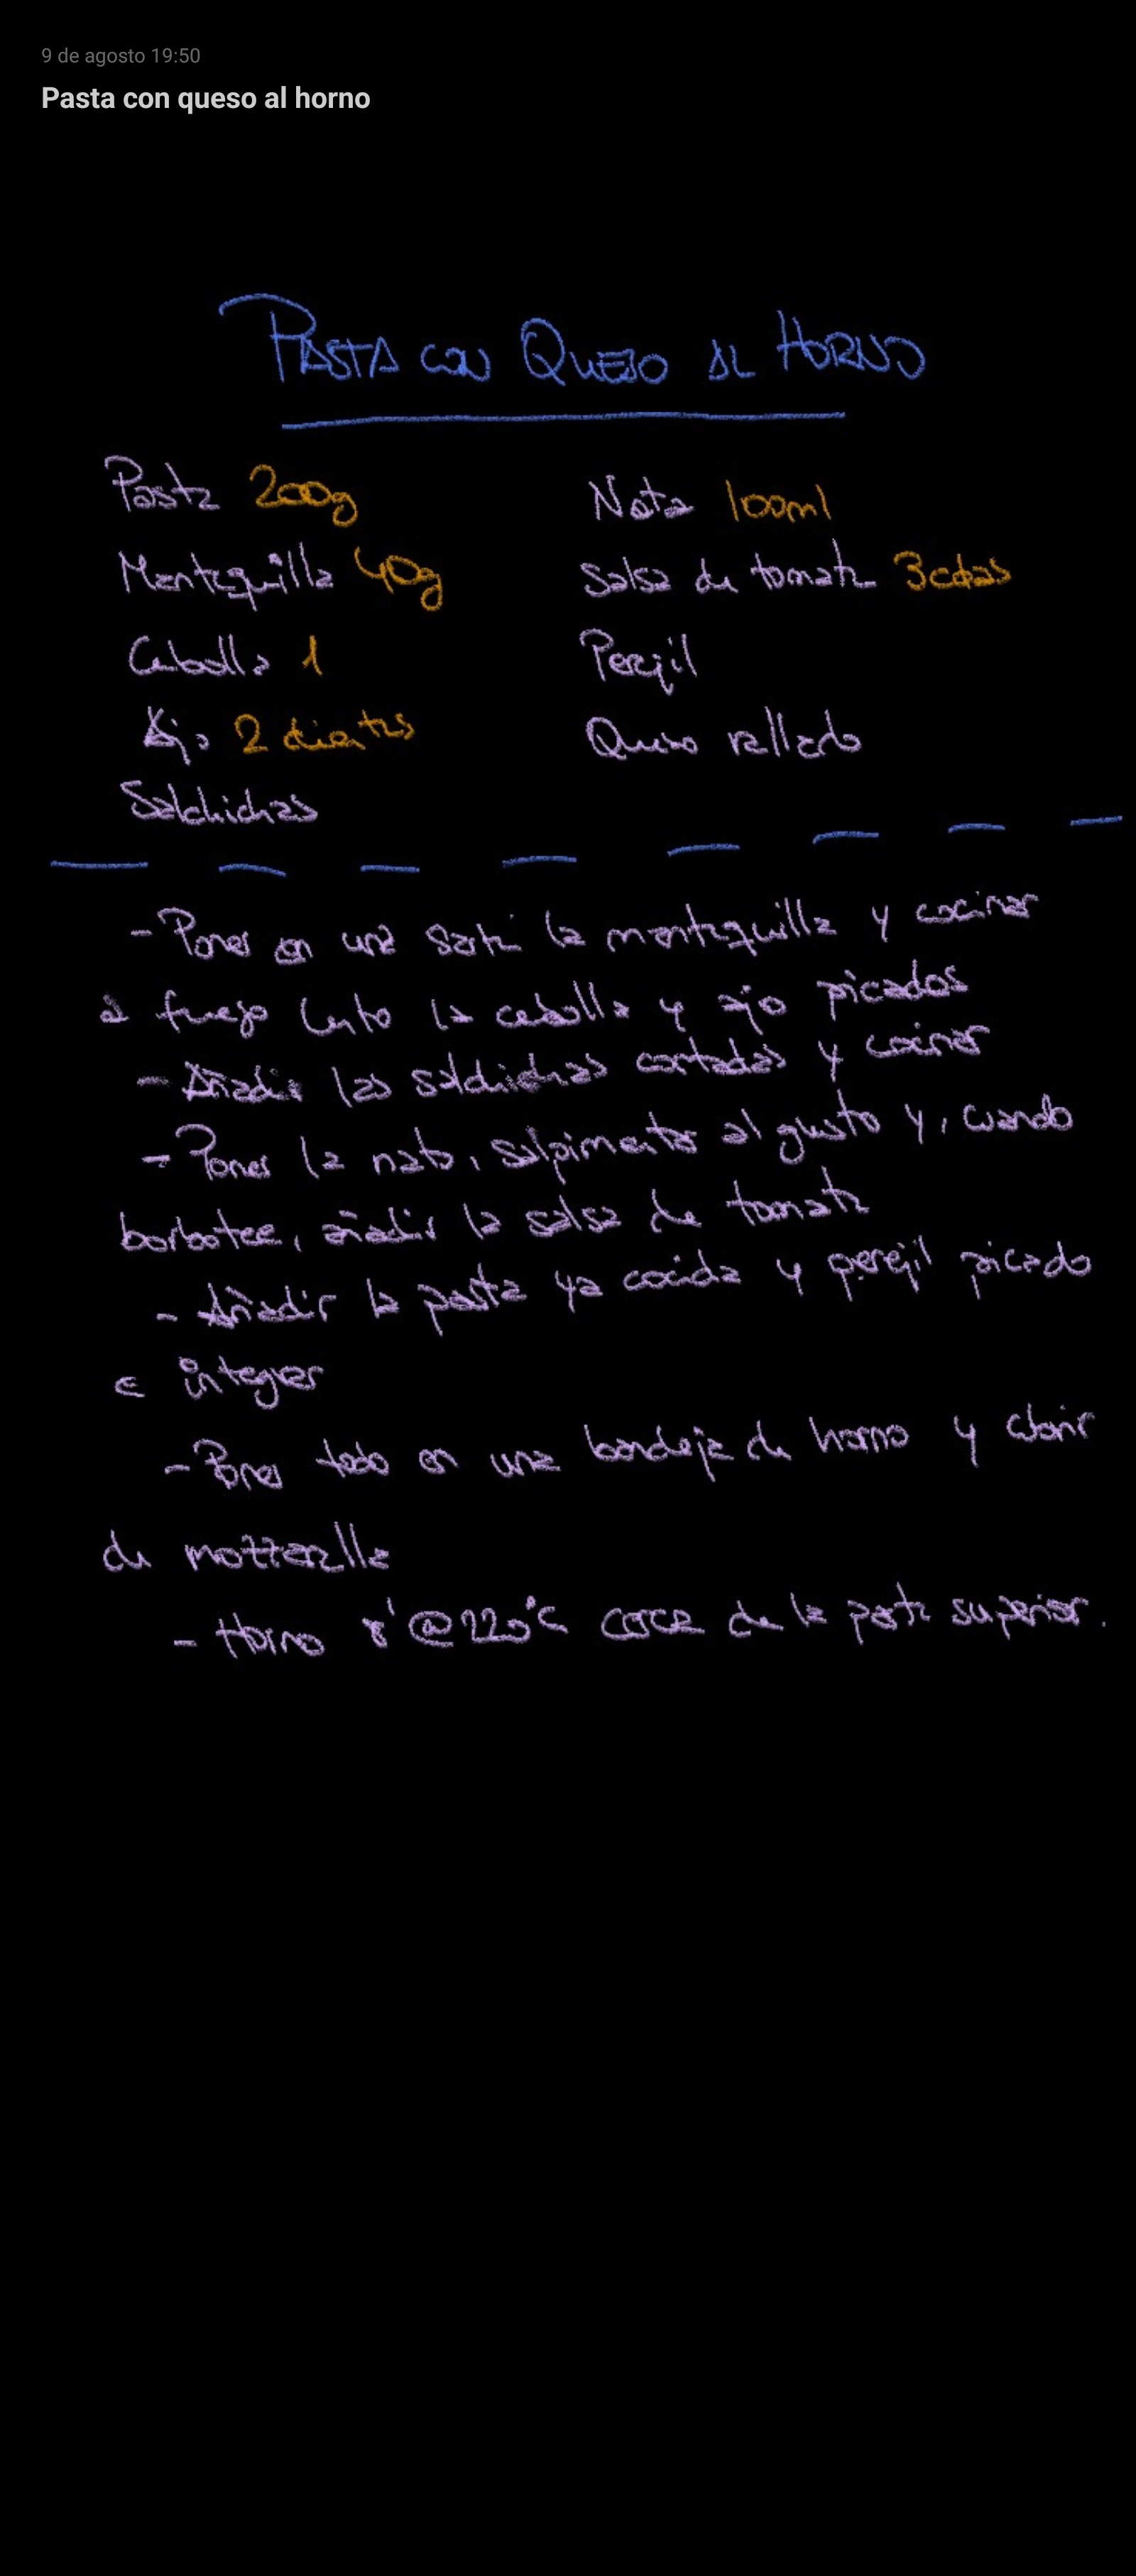 9 de agosto 19:50
Pasta con queso al horno
PASTA CON QUESO AL HORNO
Pasta 200g
Mantequilla 40g
Cebolla 1
Ajo 2 dientes
Salchichas
Nata 100ml
Salsa de tomate 3 cdas
Perejil
Queso rallado
- Poner en una sartén la mantequilla y cocinar
a fuego lento la cebolla y ajo picados
- Añadir las salchichas cortadas y cocinar
- Poner la nata, salpimentar al gusto y, cuando
borbotee, añadir la salsa de tomate
- Añadir la pasta ya cocida y perejil picado
e integrar
- Poner todo en una bandeja de horno y cubrir
de mozzarella
- Horno 8' @220°C cerca de la parte superior.